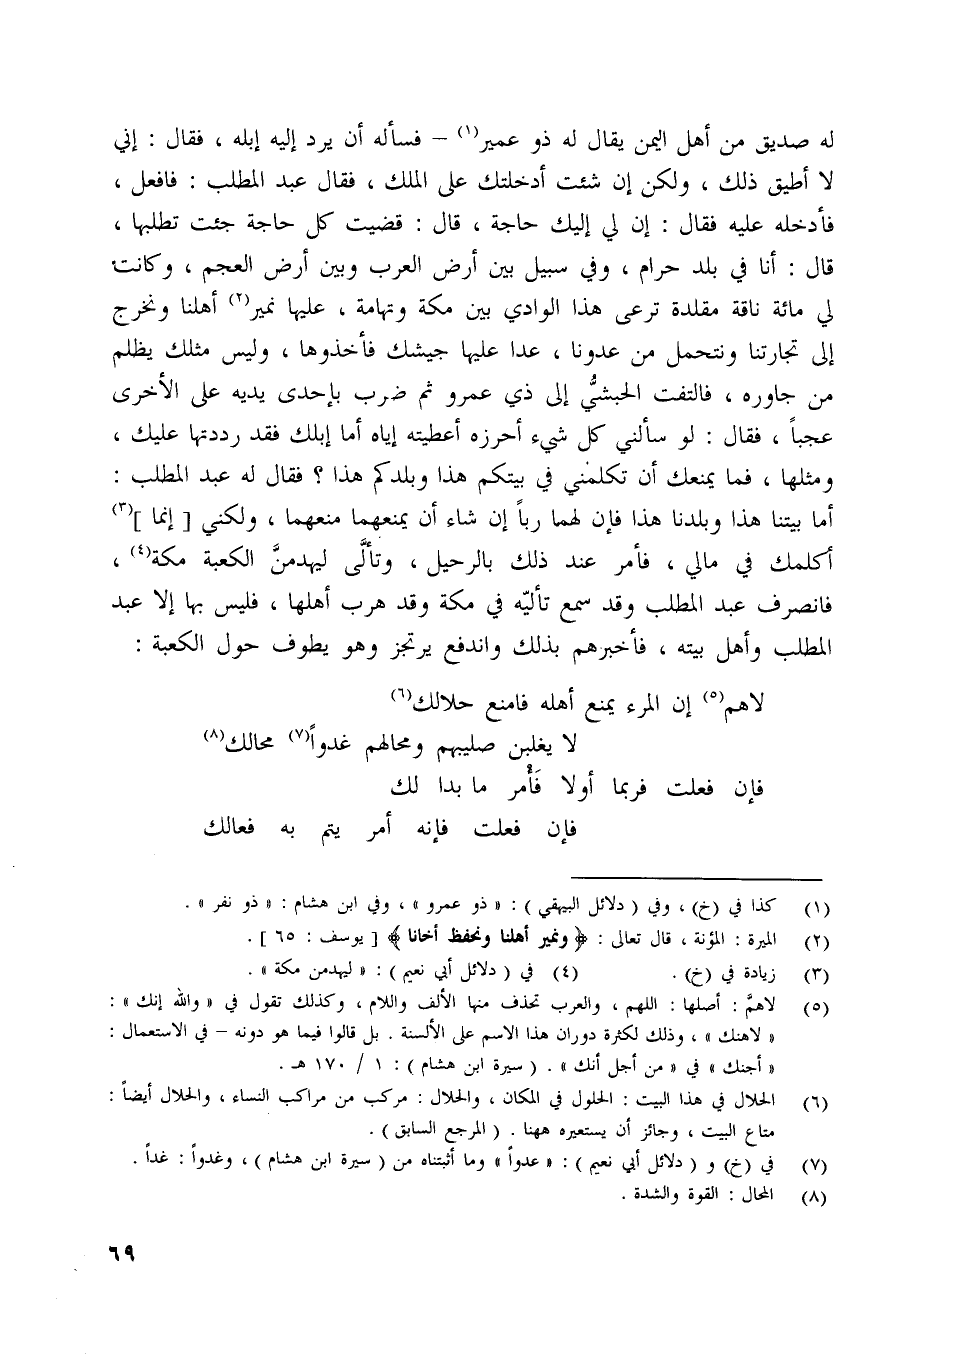 له صديق من أهل اليمن يقال له ذو عمير(١) – فسأله أن يرد إليه إبله ، فقال : إني
لا أطيق ذلك ، ولكن إن شئت أدخلتك على الملك ، فقال عبد المطلب : فافعل ،
فأدخله عليه فقال : إن لي إليك حاجة ، قال : قضيت كل حاجة جئت تطلبها ،
قال : أنا في بلد حرام ، وفي سبيل بين أرض العرب وبين أرض العجم ، وكانت
لي مائة ناقة مقلدة ترعى هذا الوادي بين مكة وتهامة ، عليها نمير(٢) أهلنا ونخرج
إلى تجارتنا ونتحمل من عدونا ، عدا عليها جيشك فأخذوها ، وليس مثلك يظلم
من جاوره ، فالتفت الحبشيُّ إلى ذي عمرو ثم ضرب بإحدى يديه على الأخرى
عجباً ، فقال : لو سألني كل شيء أحرزه أعطيته إياه أما إبلك فقد رددتها عليك ،
ومثلها ، فما يمنعك أن تكلمني في بيتكم هذا وبلدكم هذا ؟ فقال له عبد المطلب :
أما بيتنا هذا وبلدنا هذا فإن لهما رباً إن شاء أن يمنعهما منعهما ، ولكني [ إنما ](٣)
أكلمك في مالي ، فأمر عند ذلك بالرحيل ، وتألَّى ليهدمنَّ الكعبة مكة(٤) ،
فانصرف عبد المطلب وقد سمع تأليّه في مكة وقد هرب أهلها ، فليس بها إلا عبد
المطلب وأهل بيته ، فأخبرهم بذلك واندفع يرتجز وهو يطوف حول الكعبة :
لاهم(٥) إن المرء يمنع أهله فامنع حلالك(٦)
لا يغلبن صليبهم ومحالهم غدواً(٧) محالك(٨)
فإن فعلت فربما أولا فَأْمر ما بدا لك
فإن فعلت فإنه أمر يتم به فعالك
(١) كذا في (خ) ، وفي ( دلائل البيهقي ) : « ذو عمرو » ، وفي ابن هشام : « ذو نفر » .
(٢) الميرة : المؤنة ، قال تعالى : ﴿ ونمير أهلنا ونحفظ أخانا ﴾ [ يوسف : ٦٥ ] .
(٣) زيادة في (خ) . (٤) في ( دلائل أبي نعيم ) : « ليهدمن مكة » .
(٥) لاهمَّ : أصلها : اللهم ، والعرب تحذف منها الألف واللام ، وكذلك تقول في « والله إنك » :
« لاهنك » ، وذلك لكثرة دوران هذا الاسم على الألسنة . بل قالوا فيما هو دونه – في الاستعمال :
« أجنك » في « من أجل أنك » . ( سيرة ابن هشام ) : ١ / ١٧٠ هـ .
(٦) الحلال في هذا البيت : الحلول في المكان ، والحلال : مركب من مراكب النساء ، والحلال أيضاً :
متاع البيت ، وجائز أن يستعيره ههنا . ( المرجع السابق ) .
(٧) في (خ) و ( دلائل أبي نعيم ) : « عدواً » وما أثبتناه من ( سيرة ابن هشام ) ، وغدواً : غداً .
(٨) المحال : القوة والشدة .
٦٩